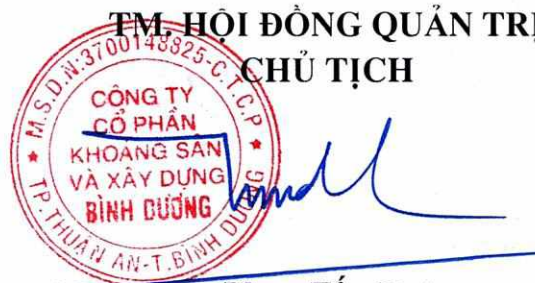 TM. HỘI ĐỒNG QUẢN TRỊ
CHỦ TỊCH
M.S.D.N:3700148825-C.T.C.P
CÔNG TY
CỔ PHẦN
KHOÁNG SẢN
VÀ XÂY DỰNG
BÌNH DƯƠNG
TP.THUẬN AN-T.BÌNH DƯƠNG